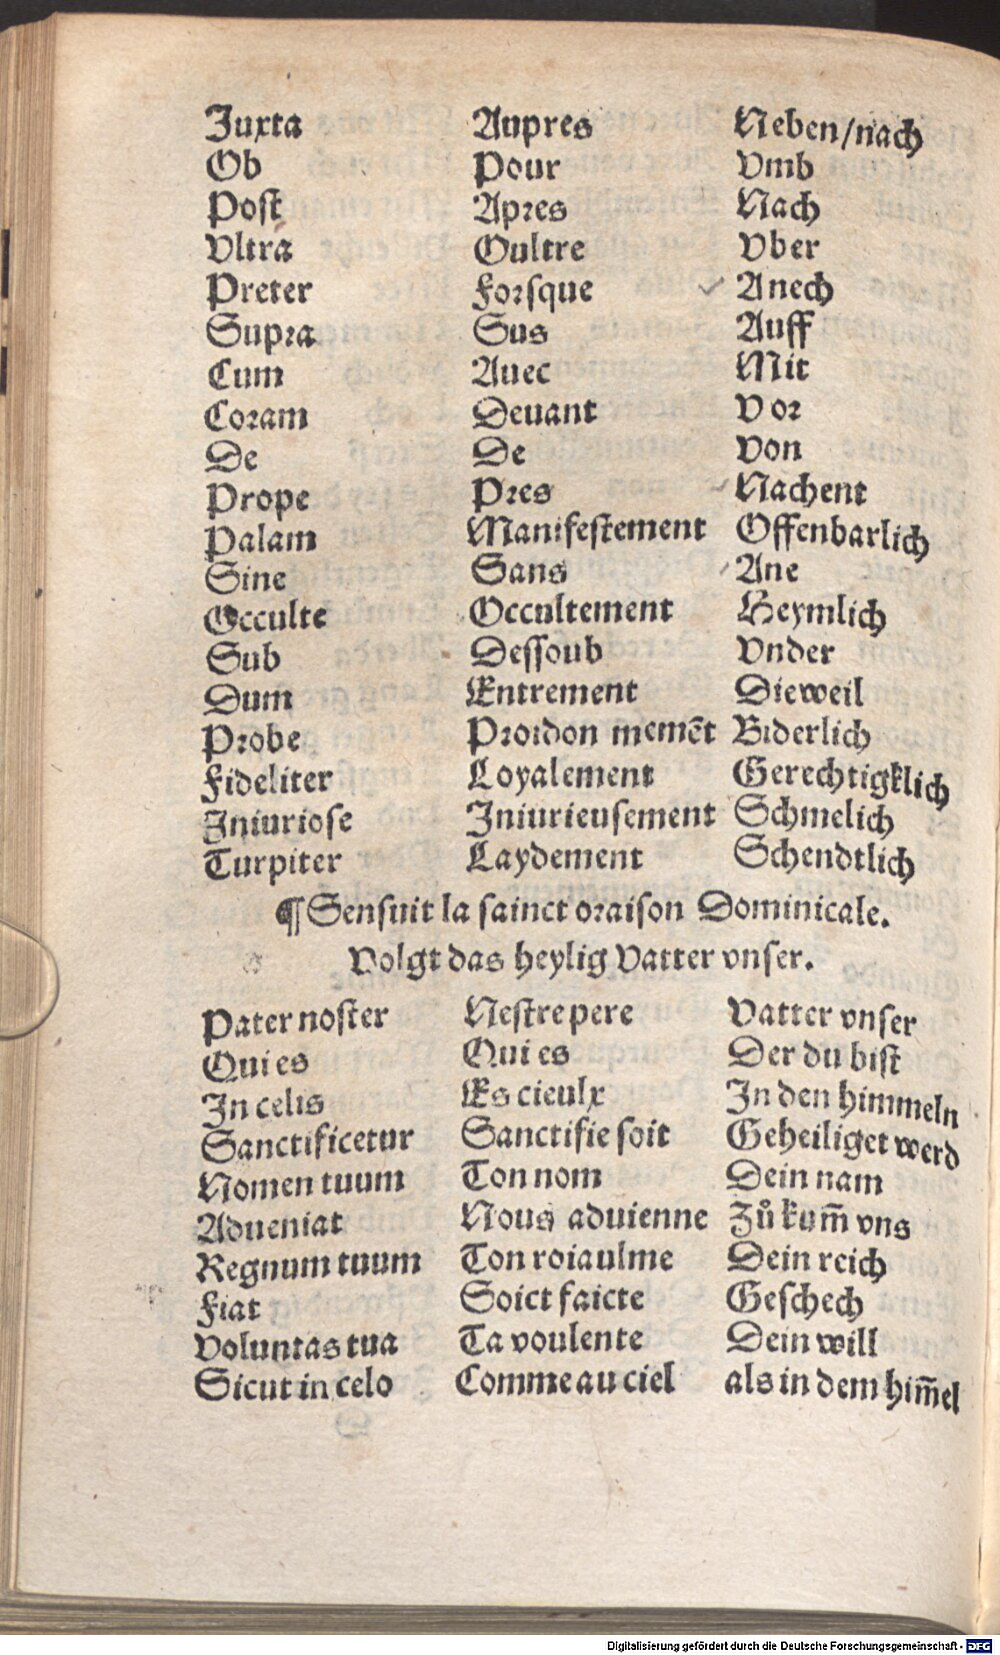 Juxta Aupres Neben/nach
Ob Pour Vmb
Post Apres Nach
Vltra Oultre Vber
Preter Forsque Anech
Supra Sus Auff
Cum Auec Mit
Coram Deuant Vor
De De Von
Prope Pres Nachent
Palam Manifestement Offenbarlich
Sine Sans Ane
Occulte Occultement Heymlich
Sub Dessoub Vnder
Dum Entrement Dieweil
Probe Proidon memēt Biderlich
Fideliter Loyalement Gerechtigklich
Iniuriose Iniurieusement Schmelich
Turpiter Laydement Schendtlich
¶ Sensuit la sainct oraison Dominicale.
Volgt das heylig Vatter vnser.
Pater noster Nestre pere Vatter vnser
Qui es Qui es Der du bist
In celis Es cieulx In den himmeln
Sanctificetur Sanctifie soit Geheiliget werd
Nomen tuum Ton nom Dein nam
Adueniat Nous aduienne Zů kum̄ vns
Regnum tuum Ton roiaulme Dein reich
Fiat Soict faicte Geschech
Voluntas tua Ta voulente Dein will
Sicut in celo Comme au ciel als in dem him̄el
Digitalisierung gefördert durch die Deutsche Forschungsgemeinschaft - DFG